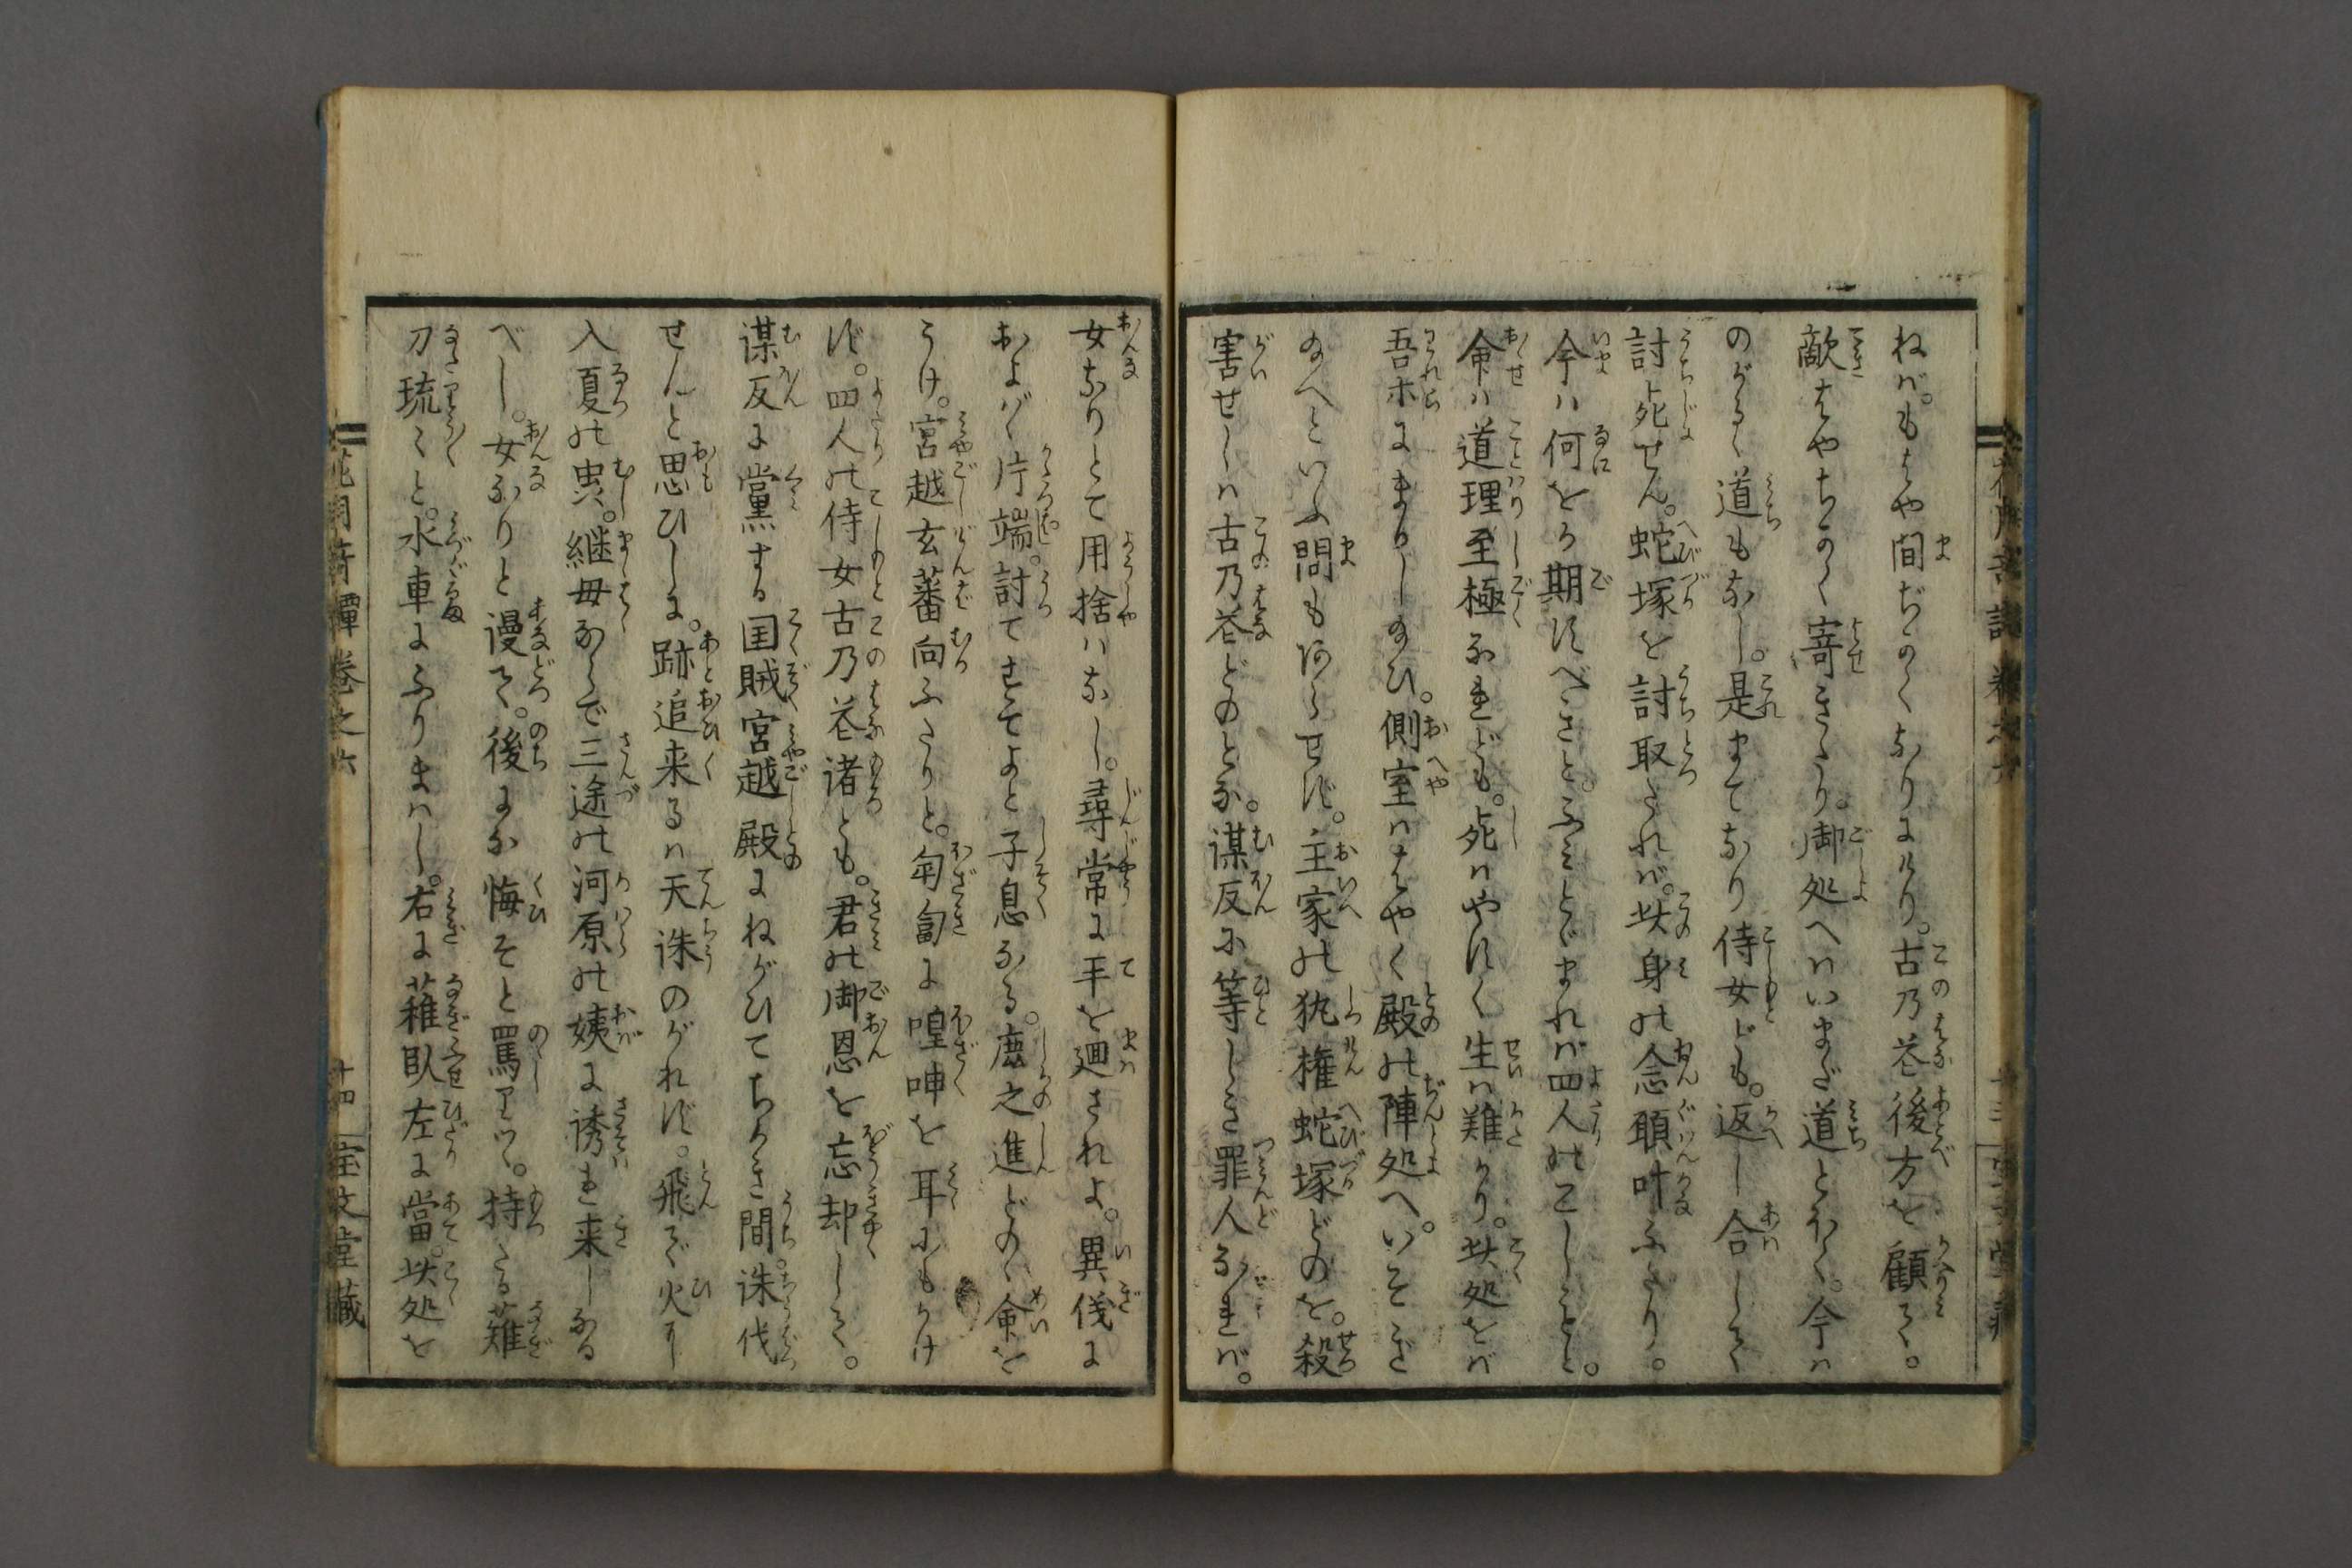 ねば。もはや間ぢかくなりにけり。古乃花後方を顧て。
敵はやちかく寄きたり。御処へはいまだ道とほく。今は
のがるゝ道もなし。是まてなり侍女ども。返し合して
討死せん。蛇塚を討取たれば。此身の念願叶ふたり。
今は何をか期すべきと。ふみとゞまれば四人のこしもと。
命は道理至極なれども。死はやすく生は難かり。此処をば
吾ホにまかし給ひ。側室ははやく殿の陣処へ。いそぎ
給へといふ間もあらせず。主家の執権蛇塚どのを。殺
害せしは古乃花どのとな。謀反に等しき罪人なれば。
女なりとて用捨はなし。尋常に手を廻されよ。異儀に
およばゞ片端。討てすてよと子息なる。鹿之進どのゝ命を
うけ。宮越玄蕃向ふたりと。匍匐に喤呻を耳にもかけ
ず。四人の侍女古乃花諸とも。君の御恩を忘却して。
謀反に黨する国賊宮越殿にねがひてちかき間。誅伐
せんと思ひしに。跡追来るは天誅のがれず。飛で火に
入夏の虫。継母ならで三途の河原の姨に誘れ来しなる
べし。女なりと謾て。後にな悔そと罵りつゝ。持たる薙
刀琉々と。水車にふりまはし。右に薙臥左に當。此処を
花月奇譚巻之六
十四
宝文堂藏